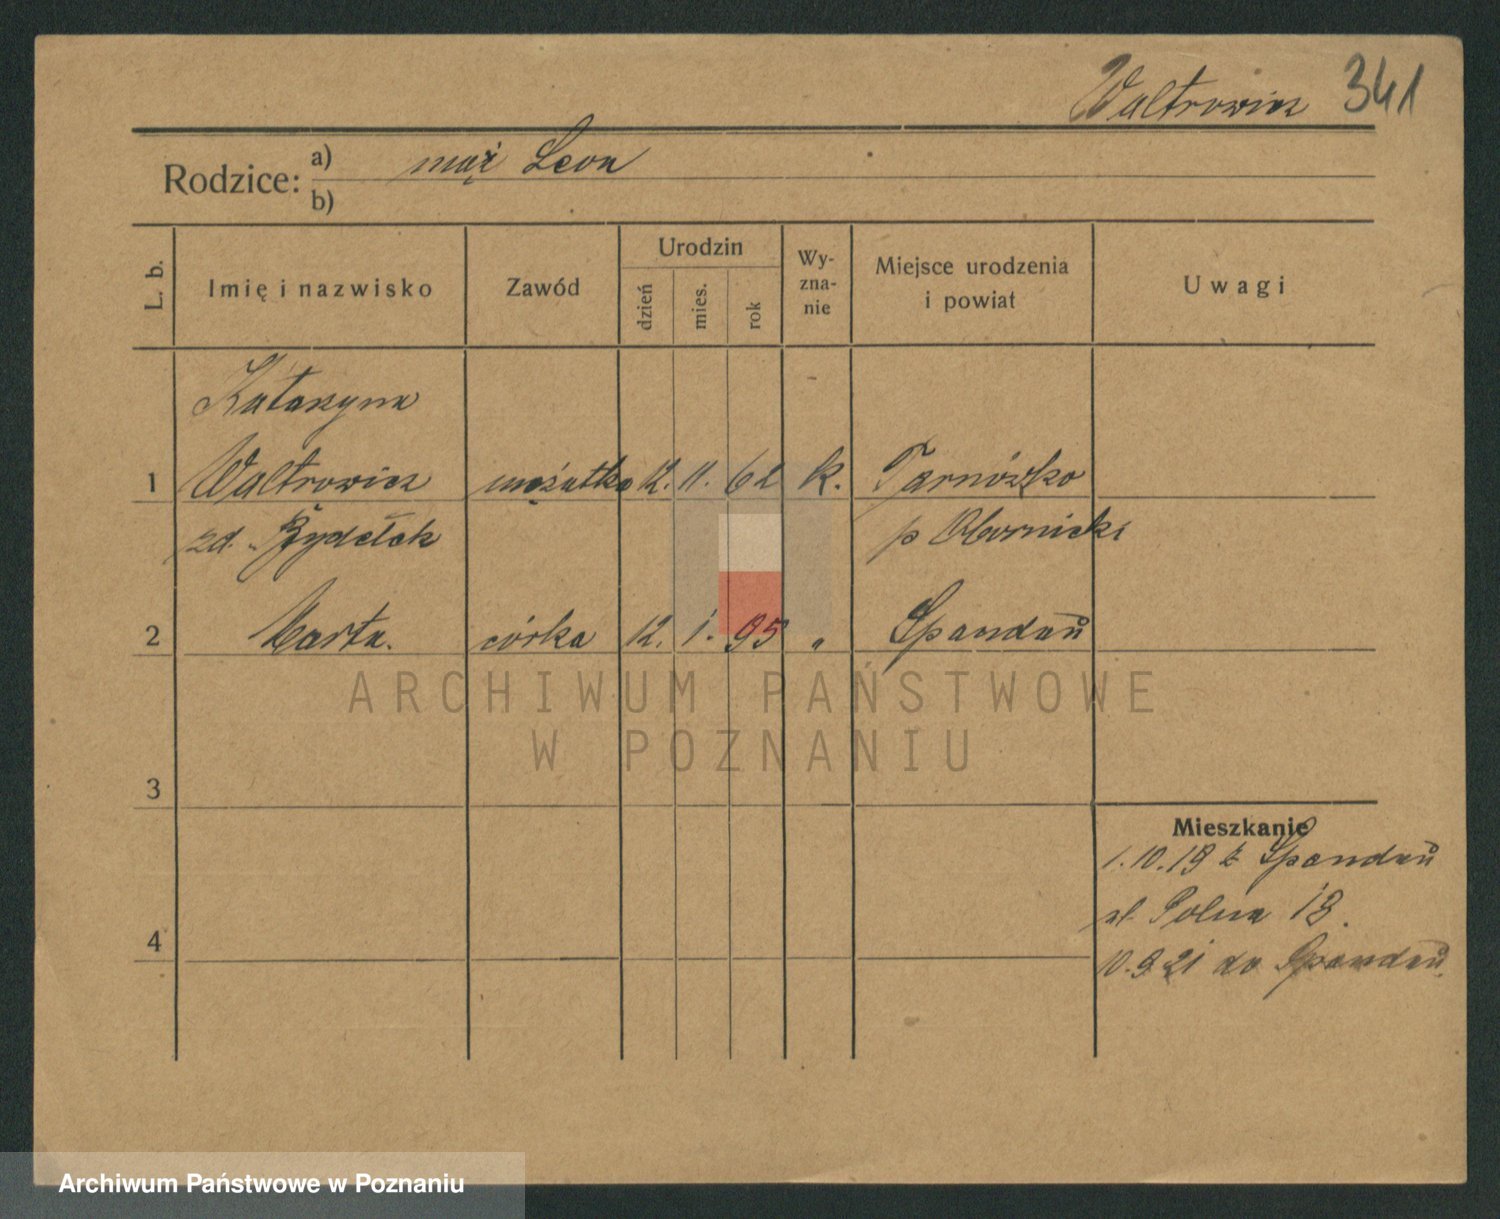 Waltrowicz 341
Rodzice: a) mąż Leon
b)
L. b. Imię i nazwisko Zawód Urodzin dzień mies. rok Wy-zna-nie Miejsce urodzenia i powiat Uwagi
Katarzyna
1 Waltrowicz mężatka 12. 11. 62 k. Tarnówko
zd. Rydelek p Obornicki
2 Marta. córka 12. 1. 95 „ Spandaŭ
3
Mieszkanie
1.10.19 z Spandaŭ
ul. Polna 18.
4
10.9.21 do Spandaŭ.
ARCHIWUM PAŃSTWOWE
W POZNANIU
Archiwum Państwowe w Poznaniu